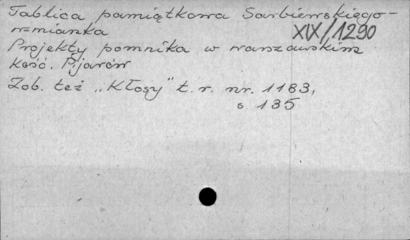 Tablica pamiątkowa Sarbiewskiego-
wzmianka XIX/1290
Projekty pomnika w warszawskim
kość. Pijarów
Zob. też "Kłosy" t. r. nr. 1183,
s 135